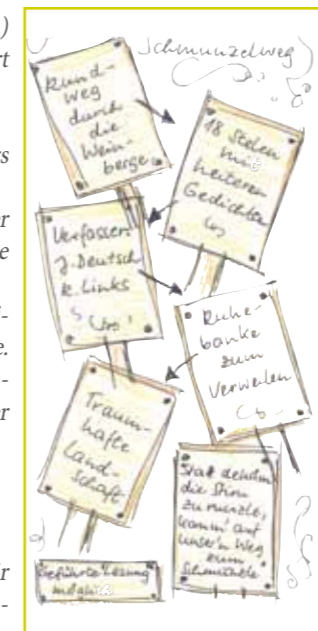 Schmunzelweg
Rund-
weg
durch
die
Wein-
berge
18 Stelen
mit
heiteren
Gedichten
Verfasser:
J. Deutsch
K. Links
Ruhe-
bänke
zum
Verweilen
Traum-
hafte
Land-
schaft
Statt daheim
die Stirn
zu runzeln,
komm' auf
unser'n Weg
zum
Schmunzeln
Geführte Lesung
möglich